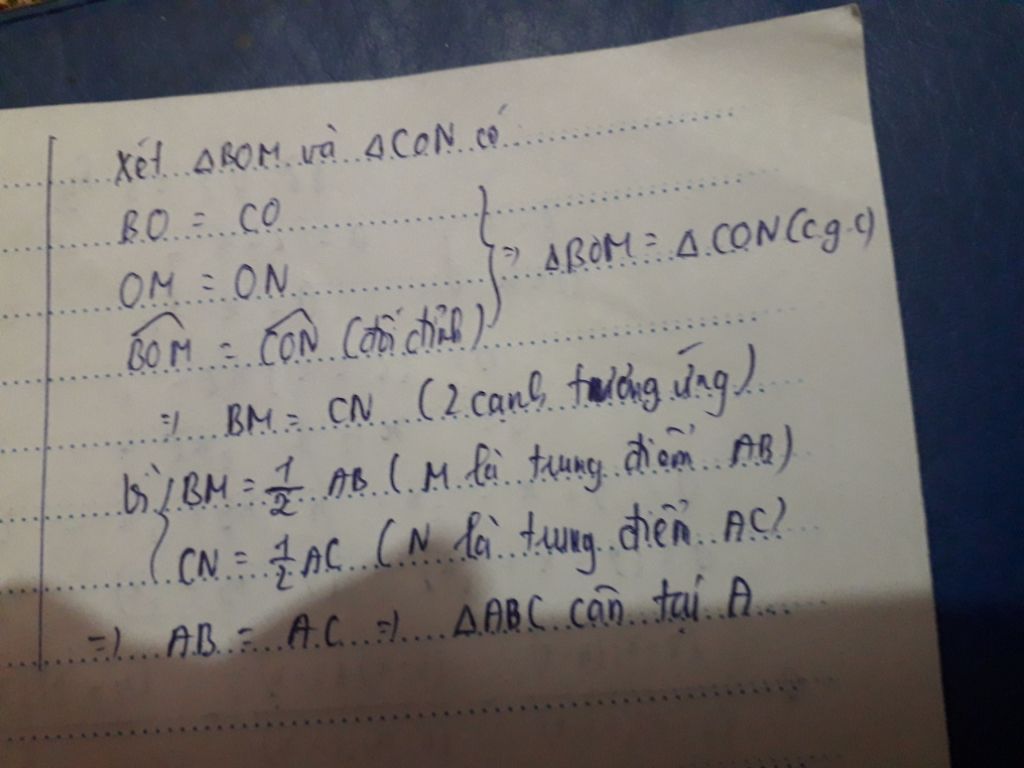 Xét ΔBOM và ΔCON có
BO = CO
OM = ON
⇒ ΔBOM = ΔCON (c.g.c)
BOM = CON (đối đỉnh)
⇒ BM = CN (2 cạnh tương ứng)
Vì BM = 1/2 AB (M là trung điểm AB)
CN = 1/2 AC (N là trung điểm AC)
⇒ AB = AC ⇒ ΔABC cân tại A